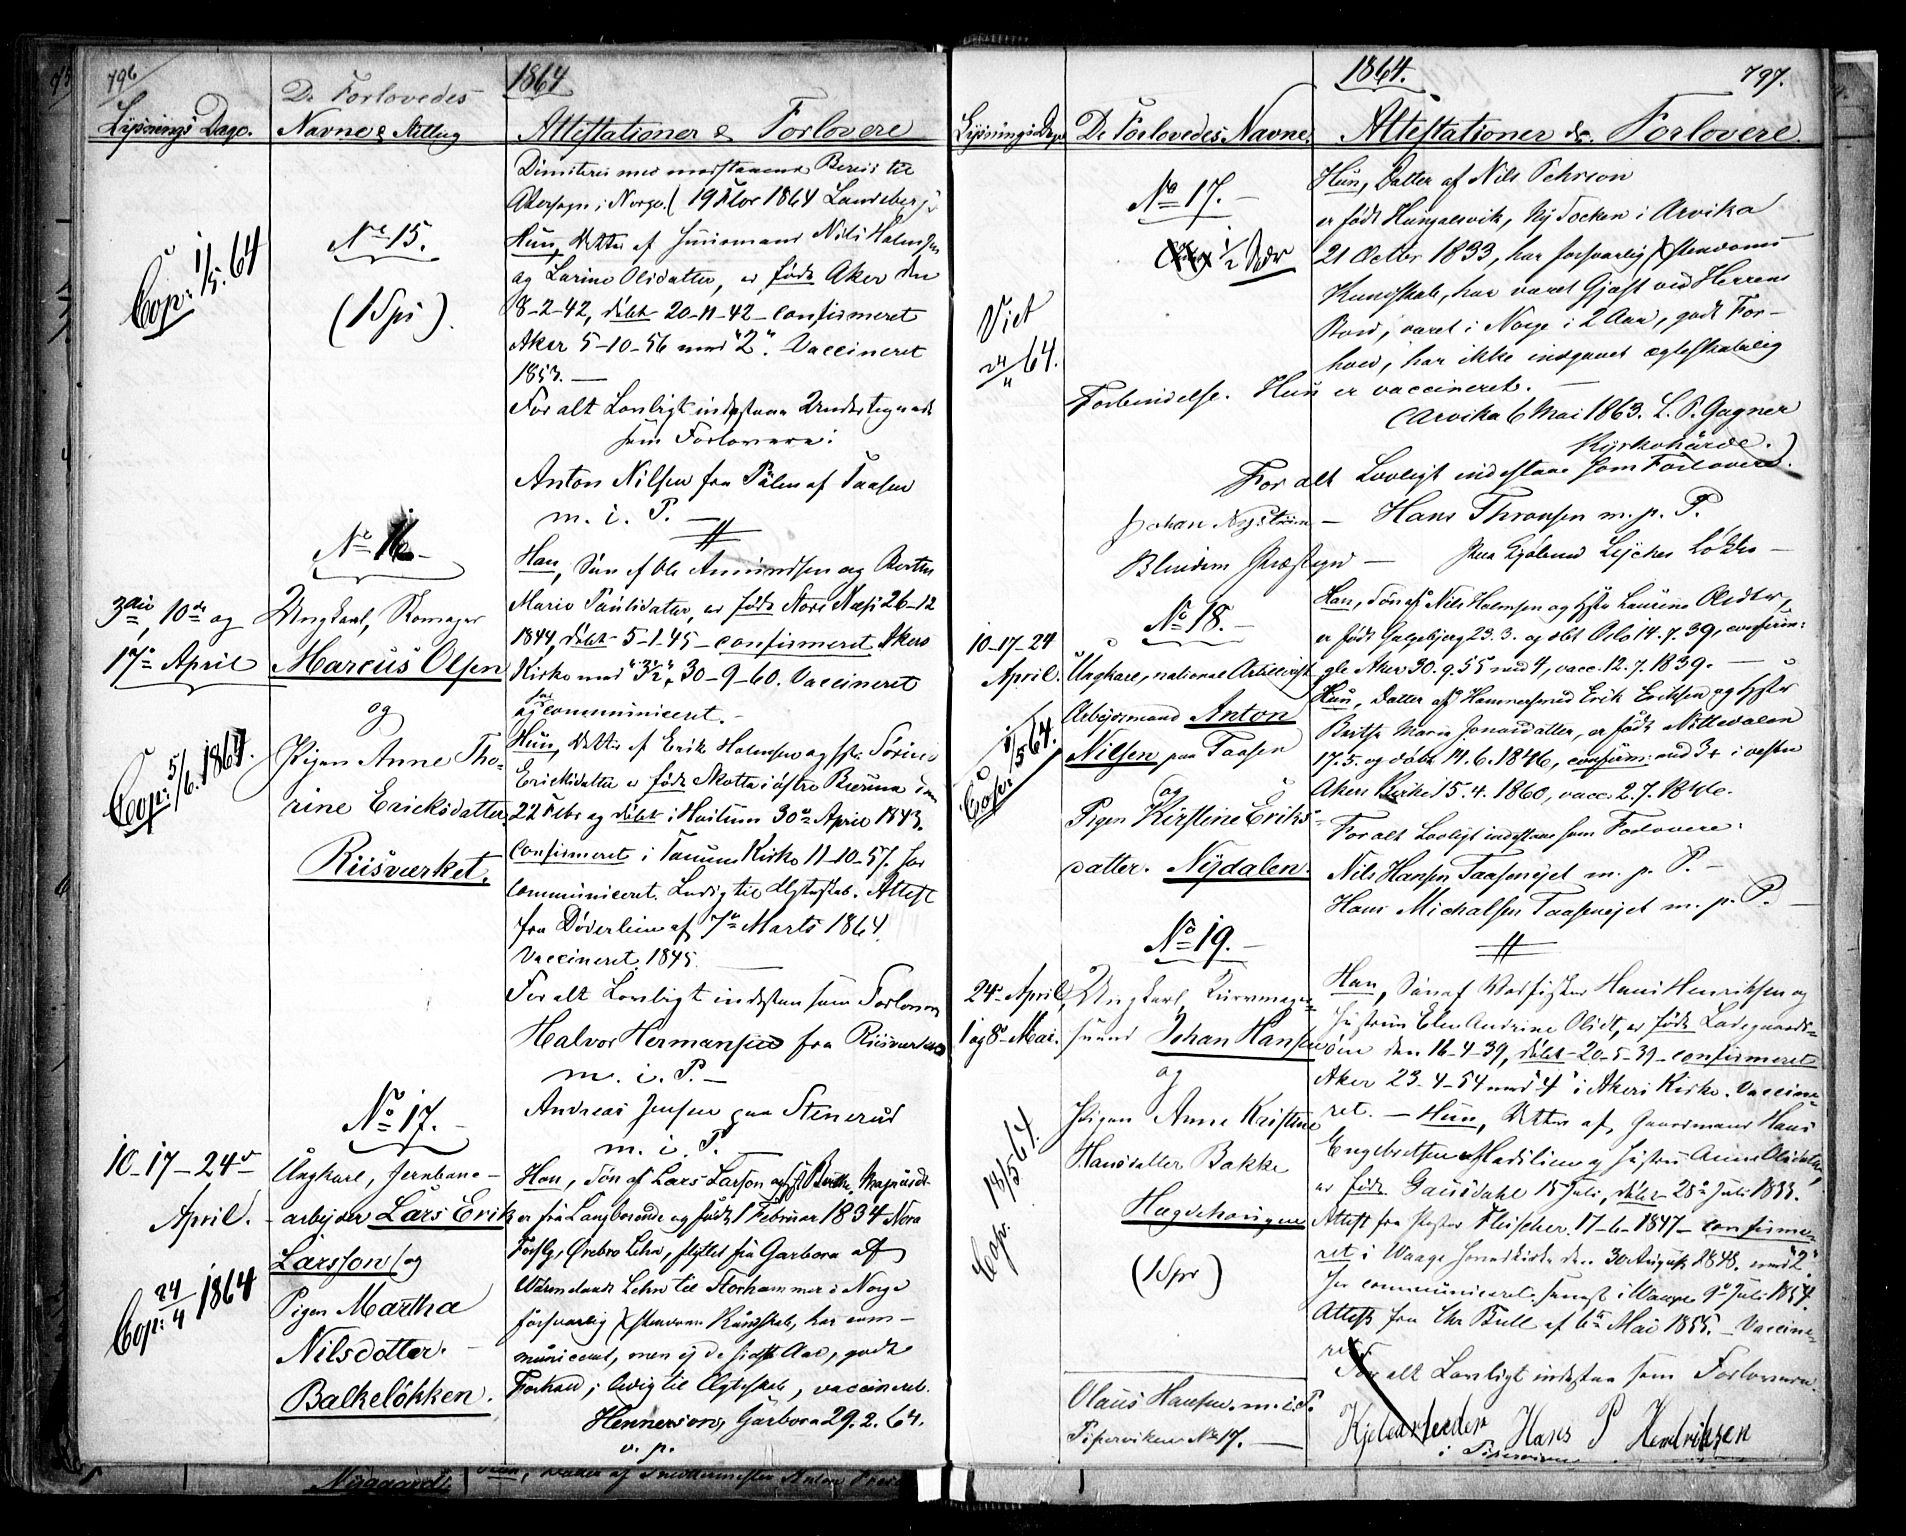 796
1864
De Forlovedes
Lysnings Dage.
Navne & Stilling
Attestationer & Forlovere
Cop: 1/5. 64
No 15.
(1 Spd).
Dimitteres med modstaaende Bevis til
Akersogn i Norge. (19 1864
Hun, Datter af Nils Holmsen
og Larine Olsdatter, er født Aker den
8-2-42, døbt 20-11-42 - confirmeret
Aker 5-10-56 med "2". Vaccineret
1853. —
For alt Lovligt indestaae Undertegnede
som Forlovere:
Anton Nilsen fra Pålen af Taasen
m. i. P. —
No 16 —
3die, 10de og
17de April
Ungkarl,
Marcus Olsen
og
Pigen Anne Tho-
rine Ericksdatter
Riisværket.
Cop: 5/6. 1864.
Han, Søn af Ole Amundsen og Berthe
Marie Paulsdatter, er født Store Næss 26-12
1844, døbt 5-1-45 - confirmeret Akers
Kirke med "3½", 30-9-60. Vaccineret
og communiceret. -
Hun, Datter af Erik Holmsen og
Ericksdatter er født i østre Bærum
22 Febr og døbt i Haslum 30te April 1843.
Confirmeret i Tanum Kirke 11-10-57. har
communiceret. Ledig til Ægteskab. Attest
fra Døderlein af 7de Marts 1864
Vaccineret 1845
For alt Lovligt indestaa som Forlovere
Halvor Hermansen fra Riisværket
m. i. P. —
Andreas Jensen paa Stenerud
m. i. P.
No 17. —
10 - 17 - 24de
April.
Ungkarl, Jernbane-
arbejder Lars Erik
Larsson / og
Pigen Martha
Nilsdotter. -
Balkeløkken.
Cop: 24/4 1864
Han, Søn af Lars Larson og
er fra Langborende og født 1 Februar 1834 Nora
Örebro Lehn, flyttet fra Garbora af
Wärmelands Lehn til Storhammer i Norge
forsvarlig Xstendoms Kundskab, har com-
municeret, men ej de sidste Aar, godt
Forhold, ledig til Ægteskab, vaccineret.
Hennerson, Garbora 29. 2. 64.
v. p.
1864.
797.
Lysnings Dage
De Forlovedes Navne.
Attestationer & Forlovere.
No 17. —
Viet
24/4 64.
Hun, Datter af Nils Pehrson
er født Hungalsvik, Ny Socken i Arvika
21 Octbr 1833, har forsvarlig Xstendoms
Kundskab, har været Gjæst ved Herrens
Bord, været i Norge i 2 Aar, godt For-
hold, har ikke indgaaet ægteskabelig
Forbindelse. Hun er vaccineret. —
(Arvika 6 Mai 1863. L. P. Gagner
Kyrkohärde.)
For alt Lovligt indestaae som Forlovere.
Johan Nyström — Hans Thronsen m. p. P.
Blindern Præstegd —
No 18. —
10-17-24
April.
Ungkarl,
Arbejdsmand Anton
Nilsen paa Taasen
og
Pigen Kirstine Eriks-
datter. Nydalen.
Cop: 1/5 64.
Han, Søn af Nils Holmsen og Hstr Laurine Olsdtr,
er født Galgebjerg 23. 3. og døbt Oslo 14. 7. 39, confirm:
gle Aker 30. 9. 55 med 4, vacc. 12. 7. 1839. —
Hun, Datter af Hammersmed Erik Eriksen og Hstr
Berthe Marie Jonasdatter, er født Nittedalen
17. 5. og døbt 14. 6. 1846, confirm: med 3+ i vestre
Akers Kirke 15. 4. 1860, vacc. 2. 7. 1846.
For alt Lovligt indestaae som Forlovere:
Nils Hansen Taasenejet m. p. P. —
Hans Michalsen Taasenejet m. p. P. —
No 19. —
24de April,
1 og 8de Mai.
Ungkarl, Kurvmager-
svend Johan Hansen
og
Pigen Anne Kristine
Hansdatter Bakke
Hægdehaugen
(1 Spd)
Cop: 13/5 64.
Han, Søn af Hans Henriksen og
Hustru Elen Andrine Olsdt, er født Ladegaards-
øen den 16-4-39, døbt 20-5-39 - confirmeret
Aker 23-4-54 med "4" i Akers Kirke. Vaccine-
ret. — Hun, Datter af Gaardmand Hans
Engebretsen og Hustru Anne Olsdatter,
er født Gausdahl 15 Juli, døbt 28de Juli 1833.
Attest fra Pastor Fleischer. 17-6-1847 - confirme-
ret i Waage den 30 August 1848. med "2".
har communiceret senest i Waage 9de Juli 1854.
Attest fra Chr Bull af 6te Mai 1855. - Vaccine-
ret.
For alt Lovligt indestaa som Forlovere.
Olaus Hansen. m. i. P.
Pipervigen No 17. —
Hans P Hendriksen
i Pipervigen